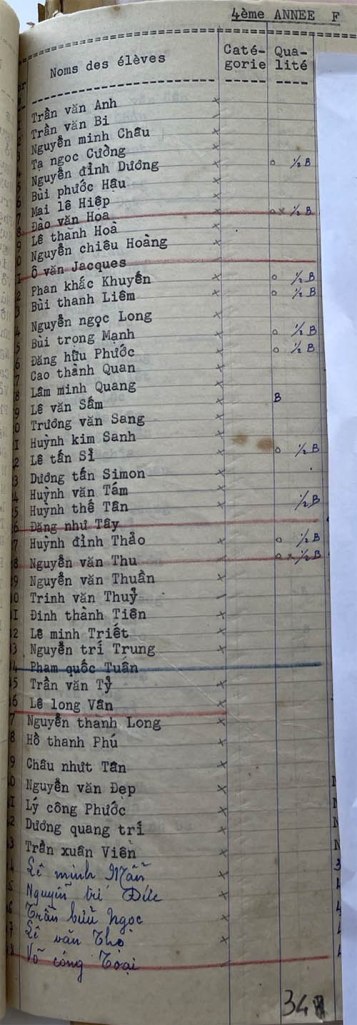 4ème ANNEE F
Noms des élèves Caté-gorie Qua-lité
Trần văn Anh x
Trần văn Bi
Nguyễn minh Châu x
Tạ ngọc Cường x
Nguyễn đình Dương x o ½ B
Bùi phước Hâu x
Mai lê Hiệp x
Đào văn Hoa x o x ½ B
Lê thanh Hoà x
Nguyễn chiêu Hoàng x
Ô văn Jacques
Phan khắc Khuyến x o ½ B
Bùi thanh Liêm x o ½ B
Nguyễn ngọc Long x
Bui trọng Mạnh x o ½ B
Đặng hữu Phước x o ½ B
Cao thành Quan x
Lâm minh Quang x
Lê văn Sấm x B
Trương văn Sang x
Huỳnh kim Sanh x
Lê tấn Sỉ x o ½ B
Dương tấn Simon x
Huỳnh văn Tám x
Huỳnh thế Tân x ½ B
Đặng như Tây x
Huỳnh đình Thảo x o ½ B
Nguyễn văn Thu x o x ½ B
Nguyễn văn Thuần x
Trinh văn Thuỷ
Đinh thành Tiên x
Lê minh Triết x
Nguyễn trí Trung x
Pham quốc Tuân x
Trần văn Tỷ x
Lê long Vân
Nguyễn thanh Long x
Hồ thanh Phú x
Châu nhựt Tân x
Nguyễn văn Đẹp x
Lý công Phước x
Dương quang trí x
Trần xuân Viên x
Lê minh Mẫn x
Nguyễn trí Đức x
Trần bửu Ngọc x
Lê văn Thọ x
Võ công Toại
34